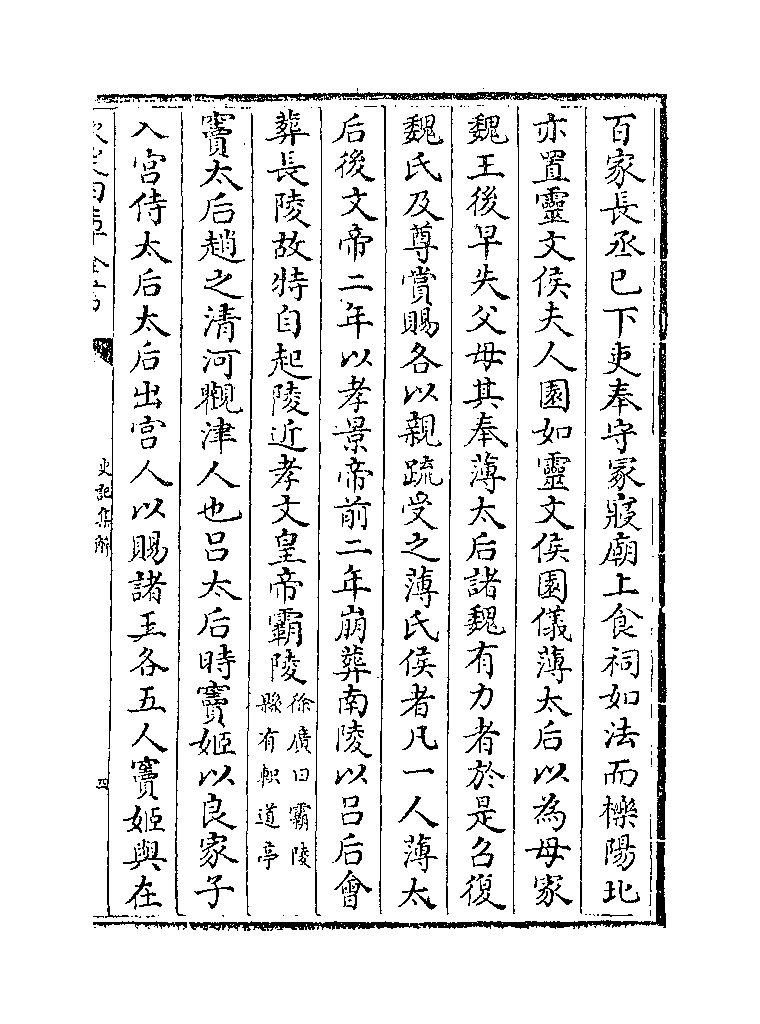 百家長丞已下吏奉守冢寢廟上食祠如法而櫟陽北
亦置靈文侯夫人園如靈文侯園儀薄太后以為母家
魏王後早失父母其奉薄太后諸魏有力者於是召復
魏氏及尊賞賜各以親疏受之薄氏侯者凡一人薄太
后後文帝二年以孝景帝前二年崩葬南陵以吕后會
葬長陵故特自起陵近孝文皇帝霸陵徐廣曰霸陵
縣有軹道亭
竇太后趙之清河觀津人也吕太后時竇姬以良家子
入宫侍太后太后出宫人以賜諸王各五人竇姬與在
史記集解
四